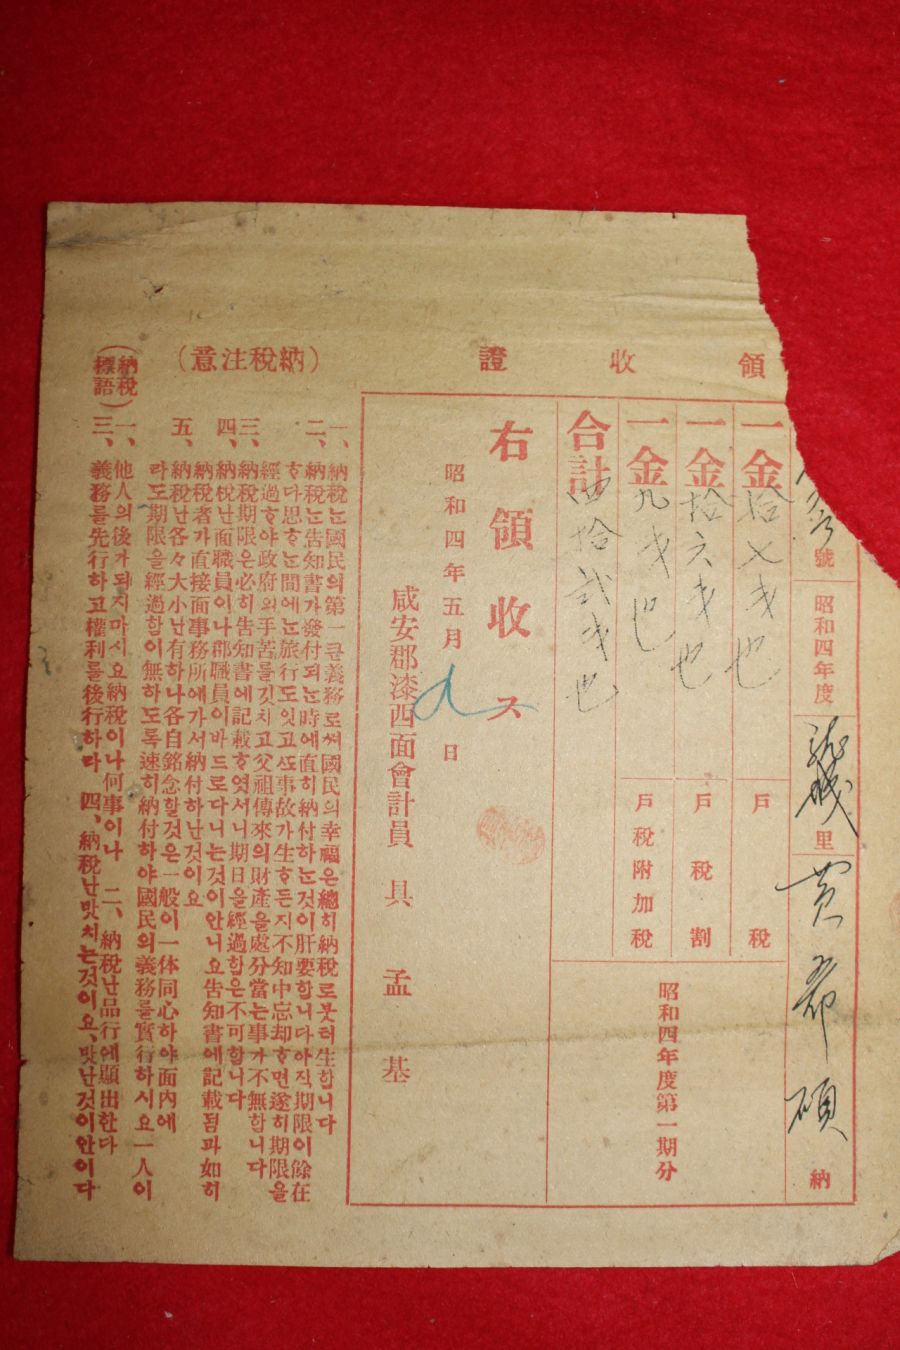 領收證
號 昭和四年度 里 黄 碩 納
一金拾七戋也 戶稅
一金拾六戋也 戶稅割
一金九戋也 戶稅附加稅
昭和四年度第一期分
合計四拾弐戋也
右領收ス
昭和四年五月 日
咸安郡漆西面會計員 具孟基
(納稅注意)
一、納稅는國民의第一큰義務로써國民의幸福은總히納稅로붓허生합니다
二、納稅는告知書가發付되는時에直히納付하는것이肝要합니다아직期限이餘在
ᄒᆞ다思ᄒᆞ는間에는旅行도잇고ᄯᅩ事故가生ᄒᆞ든지不知中忘却ᄒᆞ면遂히期限을
經過ᄒᆞ야政府의手苦를깃치고父祖傳來의財產을處分當는事가不無합니다
三、納稅期限은必히告知書에記載ᄒᆞ엿서니期日을經過함은不可합니다
四、納稅난面職員이나郡職員이바드로다니는것이안니요告知書에記載됨과如히
納稅者가直接面事務所에가서納付하난것이요
五、納稅난各々大小난有하나各自銘念할것은一般이一体同心하야面內에
라도期限을經過함이無하도록速히納付하야國民의義務를實行하시요一人이
(納稅標語)
一、他人의後가되지마시요納稅이나何事이나 二、納稅난品行에顯出한다
三、義務를先行하고權利를後行하다 四、納稅난맛치는것이요,맛난것이안이다